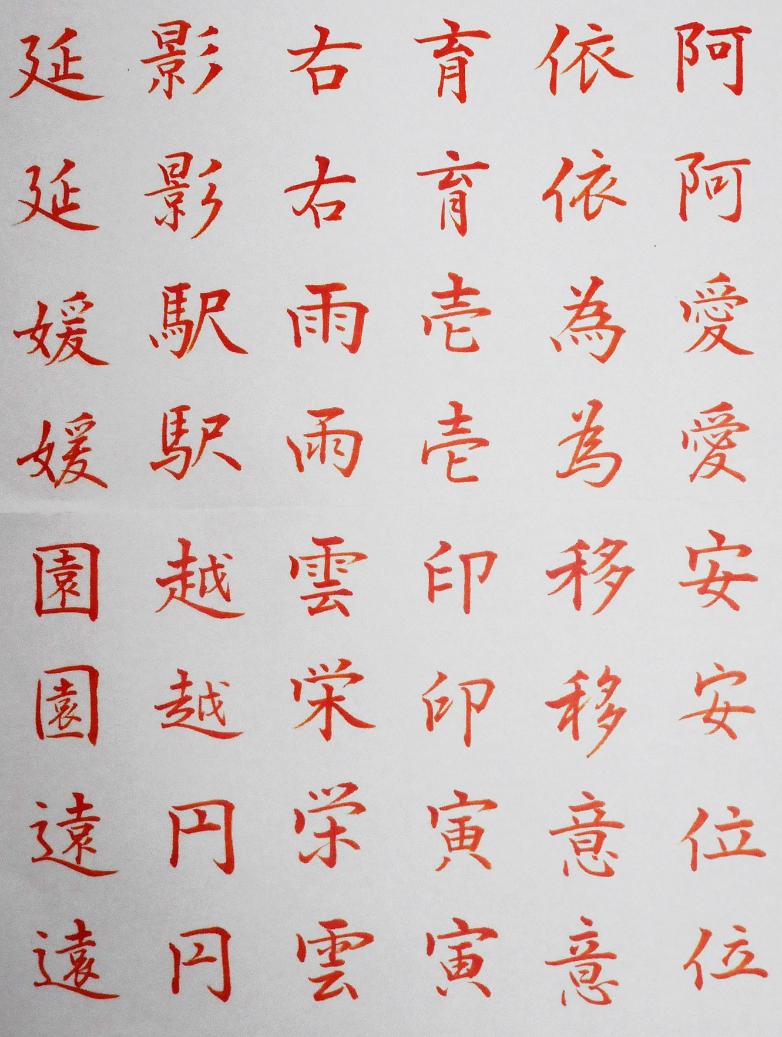 阿阿愛愛安安位位
依依為為移移意意
育育壱壱印印寅寅
右右雨雨雲栄栄雲
影影駅駅越越円円
延延媛媛園園遠遠